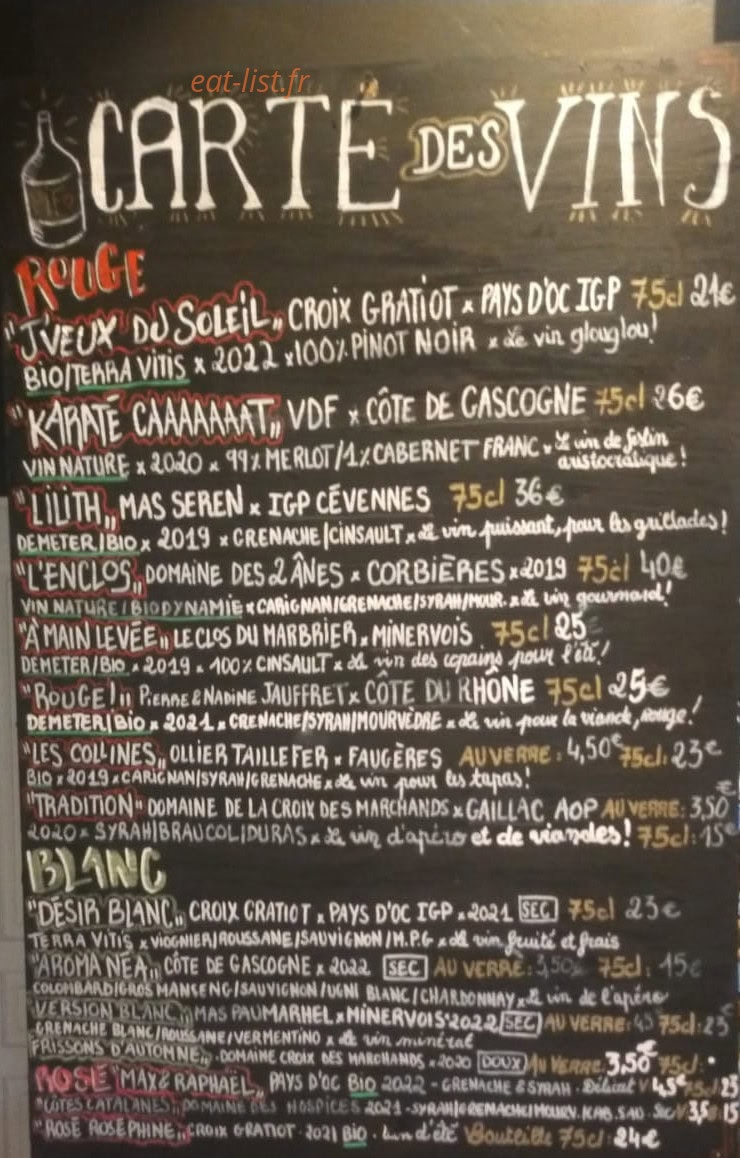 eat-list.fr
CARTE DES VINS
ROUGE
"J'VEUX DU SOLEIL„ CROIX GRATIOT x PAYS D'OC IGP 75cl 21€
BIO/TERRA VITIS x 2022 x 100% PINOT NOIR x Le vin glouglou!
"KARATÉ CAAAAAAT„ VDF x CÔTE DE GASCOGNE 75cl 26€
VIN NATURE x 2020 x 99% MERLOT/1% CABERNET FRANC x Le vin de festin aristocratique!
"LILITH„ MAS SEREN x IGP CÉVENNES 75cl 36€
DEMETER/BIO x 2019 x GRENACHE/CINSAULT x Le vin puissant, pour les grillades!
"L'ENCLOS„ DOMAINE DES 2 ÂNES x CORBIÈRES x 2019 75cl 40€
VIN NATURE/BIODYNAMIE x CARIGNAN/GRENACHE/SYRAH/MOUR. x Le vin gourmand!
"À MAIN LEVÉE„ LE CLOS DU MARBRIER x MINERVOIS 75cl 25
DEMETER/BIO x 2019 x 100% CINSAULT x Le vin des copains pour l'été!
"ROUGE!„ PIERRE & NADINE JAUFFRET x CÔTE DU RHÔNE 75cl 25€
DEMETER/BIO x 2021 x GRENACHE/SYRAH/MOURVÈDRE x Le vin pour la viande, rouge!
"LES COLLINES„ OLLIER TAILLEFER x FAUGÈRES AU VERRE: 4,50€ 75cl: 23€
BIO x 2019 x CARIGNAN/SYRAH/GRENACHE x Le vin pour les tapas!
"TRADITION" DOMAINE DE LA CROIX DES MARCHANDS x GAILLAC AOP AU VERRE: 3,50€
2020 x SYRAH/BRAUCOL/DURAS x Le vin d'apéro et de viandes! 75cl: 15€
BLANC
"DÉSIR BLANC„ CROIX GRATIOT x PAYS D'OC IGP x 2021 SEC 75cl 23€
TERRA VITIS x VIOGNIER/ROUSSANE/SAUVIGNON/M.P.G x Le vin fruité et frais
"AROMANEA„ CÔTE DE GASCOGNE x 2022 SEC AU VERRE: 3,50 75cl: 15€
COLOMBARD/GROS MANSENG/SAUVIGNON/UGNI BLANC/CHARDONNAY x Le vin de l'apéro
"VERSION BLANC„ MAS PAUMARHEL x MINERVOIS 2022 SEC AU VERRE: 75cl: 23€
GRENACHE BLANC/ROUSSANE/VERMENTINO x Le vin minéral
"FRISSONS D'AUTOMNE„ DOMAINE CROIX DES MARCHANDS x 2020 DOUX AU VERRE: 3,50€ 75cl:
ROSÉ "MAX & RAPHAËL„ PAYS D'OC BIO 2022 - GRENACHE & SYRAH - Délicat V 4,5€ 75cl 23
"CÔTES CATALANES„ DOMAINE DES HOSPICES 2021 - SYRAH/GRENACHE/MOURV. Sec V 3,5€ 15
"ROSÉ ROSÉPHINE„ CROIX GRATIOT - 2021 BIO - d'été Bouteille 75cl: 24€